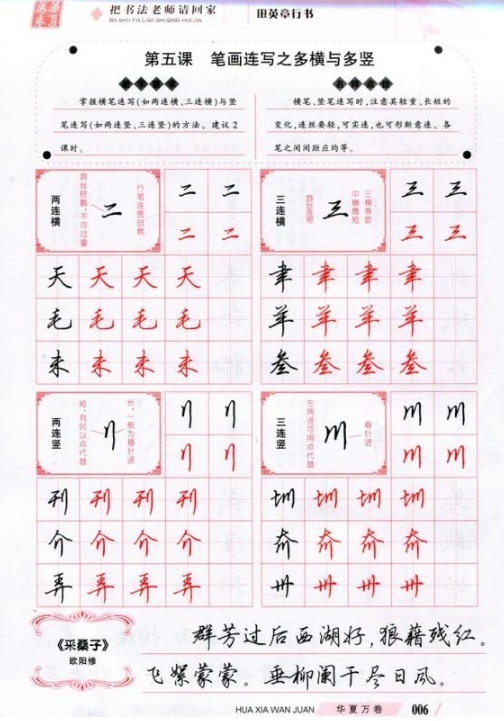 华夏万卷
把书法老师请回家
BA SHU FA LAO SHI QING HUI JIA
田英章行书
第五课 笔画连写之多横与多竖
掌握横笔连写(如两连横、三连横)与竖
笔连写(如两连竖、三连竖)的方法。建议2
课时。
横笔、竖笔连写时,注意其轻重、长短的
变化,连丝要轻,可实连,也可形断意连。各
笔之间间距应均等。
两连横
游丝轻飘,不可过重
二
行笔连贯自然
二 二
二 二
天 天 天 天
毛 毛 毛 毛
未 未 未 未
三连横
游丝连带
三
三横等距
中横最短
三 三
三 三
聿 聿 聿 聿
羊 羊 羊 羊
叁 叁 叁 叁
两连竖
短,有时以点代替
长,一般为悬针竖
刊 刊 刊 刊
介 介 介 介
弄 弄 弄 弄
三连竖
左两竖可用点代替
川
悬针竖
川 川
川 川
圳 圳 圳 圳
夼 夼 夼 夼
卅 卅 卅 卅
《采桑子》
欧阳修
群芳过后西湖好,狼藉残红。
飞絮蒙蒙。垂柳阑干尽日风。
HUA XIA WAN JUAN
华夏万卷
006